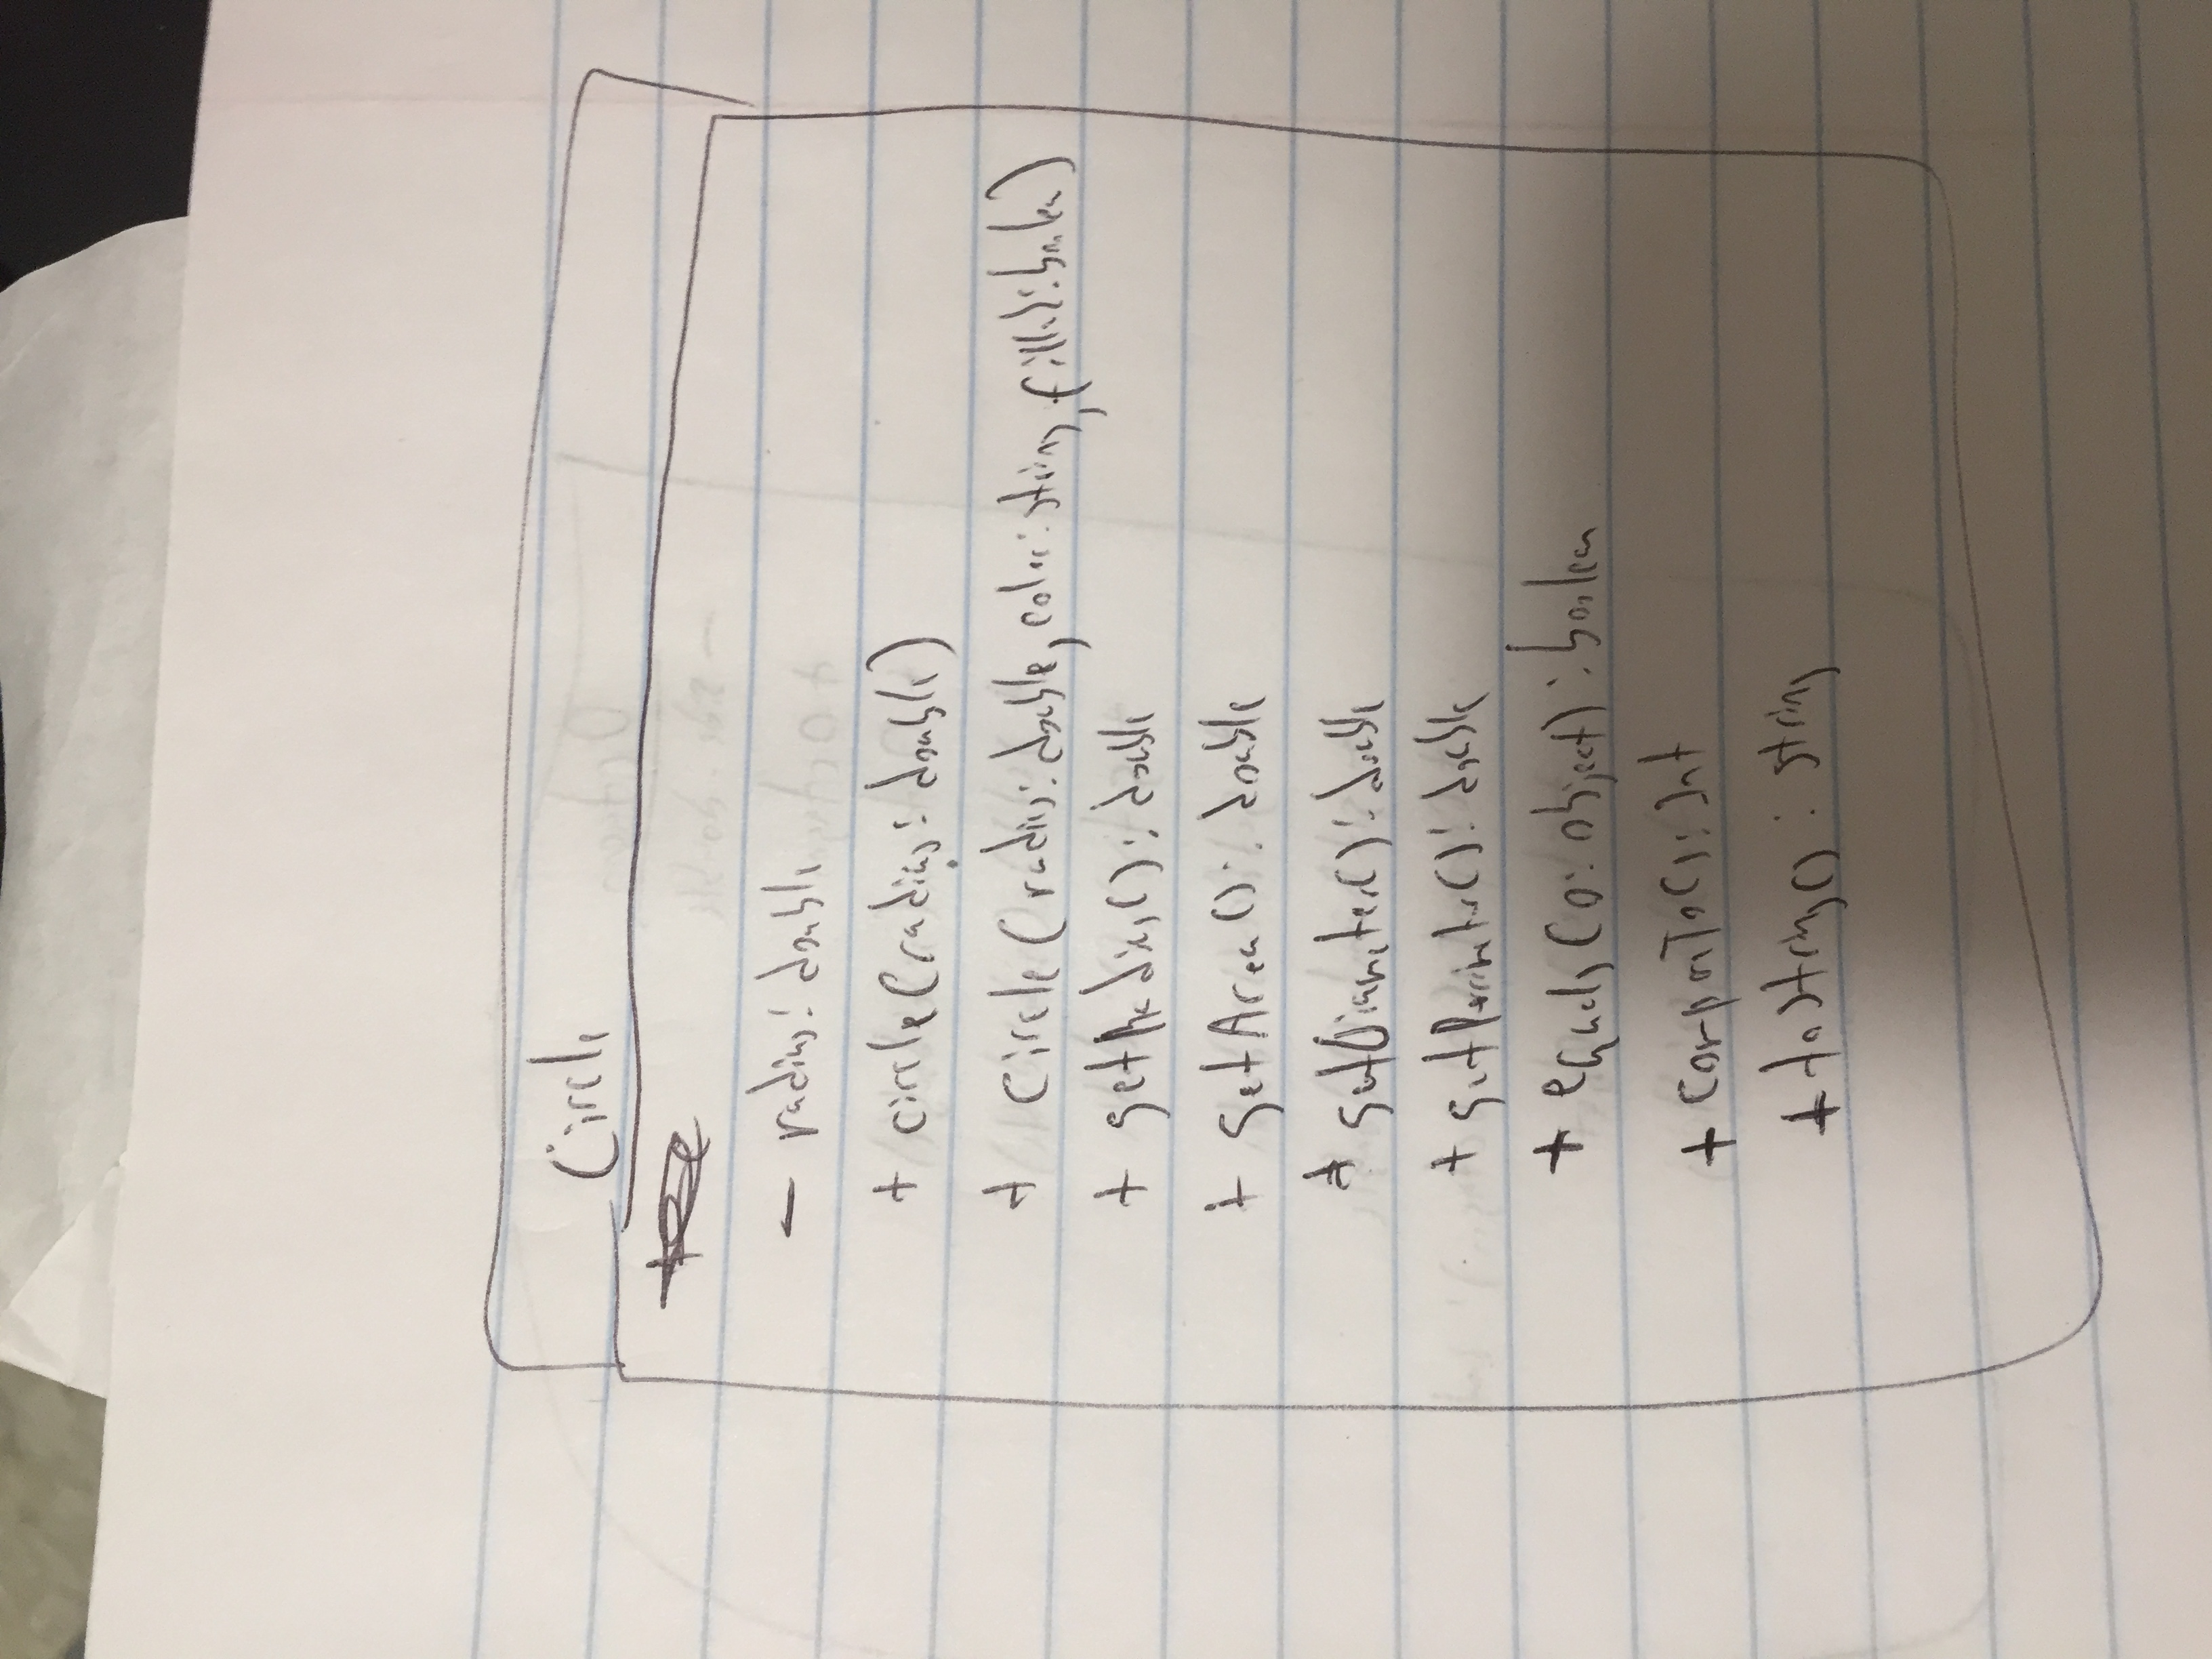 Circle
- radius: double
+ circle(radius: double)
+ Circle(radius: double, color: string, filled: boolean)
+ getRadius(): double
+ getArea(): double
+ getDiameter(): double
+ getPerimeter(): double
+ equals(o: object): boolean
+ compareTo(): Int
+ toString(): string